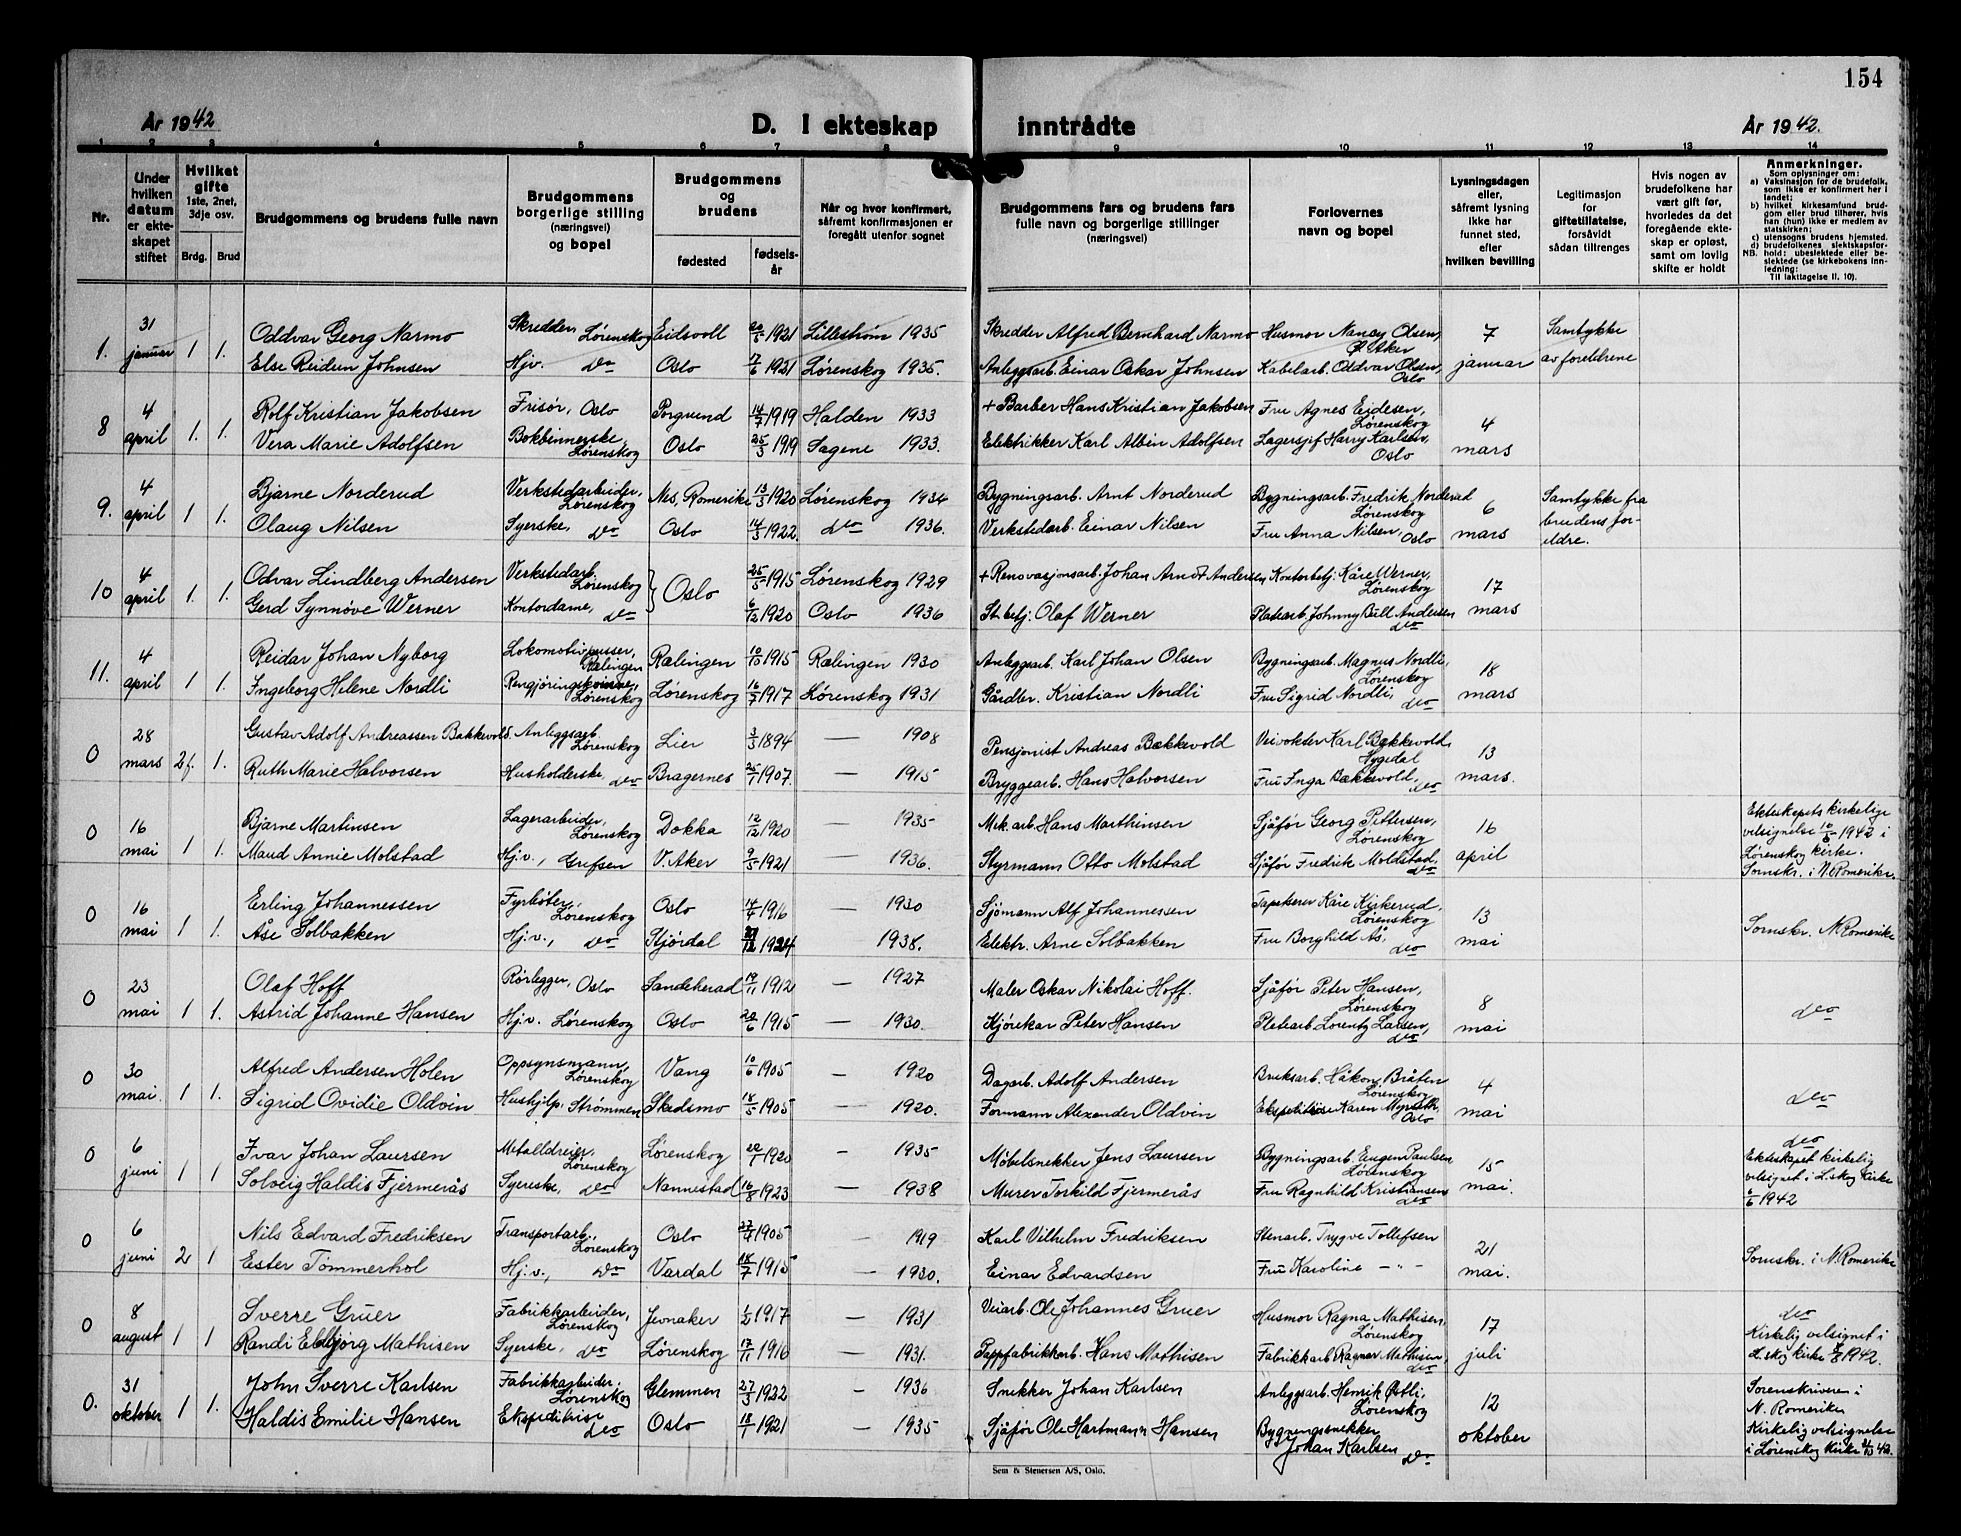 154
År 1942
D. I ekteskap inntrådte
År 1942.
1 2 3 4 5 6 7 8 9 10 11 12 13 14
Nr.
Under hvilken datum er ekteskapet stiftet
Hvilket gifte 1ste, 2net, 3dje osv.
Brdg. Brud
Brudgommens og brudens fulle navn
Brudgommens borgerlige stilling (næringsvei) og bopel
Brudgommens og brudens
fødested
fødselsår
Når og hvor konfirmert, såfremt konfirmasjonen er foregått utenfor sognet
Brudgommens fars og brudens fars fulle navn og borgerlige stillinger (næringsvei)
Forlovernes navn og bopel
Lysningsdagen eller, såfremt lysning ikke har funnet sted, efter hvilken bevilling
Legitimasjon for giftetillatelse, forsåvidt sådan tiltrenges
Hvis nogen av brudefolkene har vært gift før, hvorledes da det foregående ekteskap er opløst, samt om lovlig skifte er holdt
Anmerkninger.
Som oplysninger om:
a) Vaksinasjon for de brudefolk, som ikke er konfirmert her i landet;
b) hvilket kirkesamfund brudgom eller brud tilhører, hvis han (hun) ikke er medlem av statskirken;
c) utensogns brudens hjemsted.
d) brudefolkenes slektskapsforhold: ubeslektede eller beslektede (se kirkebokens innledning:
NB. Til iakttagelse II. 10).
1. 31 januar 1 1. Oddvar Georg Narmo Skredder, Lørenskog Eidsvoll 20/5 1921 Lillestrøm 1935 Skredder Alfred Bernhard Narmo Husmor Nancy Olsen, Ø. Aker 7 januar Samtykke av foreldrene
Else Reidun Johnsen Hjv. do Oslo 17/6 1921 Lørenskog 1935. Anleggsarb. Einar Oskar Johnsen Kabelarb. Oddvar Olsen, Oslo
8 4 april 1. 1. Rolf Kristian Jakobsen Frisør, Oslo Porsgrund 14/7 1919 Halden 1933 + Barber Hans Kristian Jakobsen Fru Agnes Eidesen, Lørenskog 4 mars
Vera Marie Adolfsen Bokbinnerske, Lørenskog Oslo 25/3 1919 Sagene 1933. Elektrikker Karl Albin Adolfsen Lagersjef Harry Karlsen, Oslo
9. 4 april 1 1. Bjarne Norderud Verkstedarbeider, Lørenskog Nes, Romerike 13/3 1920 Lørenskog 1934 Bygningsarb. Arnt Norderud Bygningsarb. Fredrik Norderud Lørenskog 6 mars Samtykke fra brudens foreldre.
Olaug Nilsen Syerske, do Oslo 14/3 1922. do 1936. Verkstedarb. Einar Nilsen Fru Anna Nilsen, Oslo
10 4 april 1. 1. Odvar Lindberg Andersen Verkstedarb. Lørenskog } Oslo 25/5 1915 Lørenskog 1929 + Renovasjonsarb. Johan Arndt Andersen Kontorbetj. Kåre Werner, Lørenskog 17 mars
Gerd Synnøve Werner Kontordame, do 6/12 1920 Oslo 1936 St.betj: Olaf Werner Platearb. Johnny Bull Andersen do
11. 4 april 1 1. Reidar Johan Nyborg Lokomotivpusser, Rælingen Rælingen 10/10 1915 Rælingen 1930 Anleggsarb. Karl Johan Olsen Bygningsarb. Magnus Nordli, Lørenskog 18 mars
Ingeborg Helene Nordli Rengjøringskvinne, Lørenskog Lørenskog 16/7 1917 Lørenskog 1931 Gårdbr. Kristian Nordli Fru Sigrid Nordli, do
0 28 mars 2f. 1. Gustav Adolf Andreassen Bakkevold. Anleggsarb. Lørenskog Lier 3/3 1894 — 1908 Pensjonist Andreas Bækkevold Veivokter Karl Bækkevold, 13 mars.
Ruth Marie Halvorsen Husholderske, do Bragernes 25/1 1907. — 1915 Bryggearb. Hans Halvorsen Fru Inga Bækkevold, do
0 16 mai 1 1. Bjarne Martinsen Lagerarbeider, Lørenskog Dokka 12/12 1920 — 1935 Mek.arb. Hans Marthinsen Sjåfør Georg Pettersen, Lørenskog 16 april Ekteskapets kirkelige velsignelse 10/6 1942 i Lørenskog kirke. Sornskr. i N. Romerike.
Maud Annie Molstad Hj.v., Grefsen V. Aker 9/5 1921 — 1936. Styrmann Otto Molstad Sjåfør Fredrik Moldstad, do
0 16 mai 1 1. Erling Johannessen Fyrbøter, Lørenskog Oslo 14/4 1916 — 1930 Sjømann Alf Johannessen Tapetserer Kåre Kirkerud, Lørenskog 13 mai Sornskr. N. Romerike
Åse Solbakken Hj.v., do Stjørdal 1924 1938. Elektr. Arne Solbakken Fru Borghild Ås, do
0 23 mai 1 1. Olaf Hoff Rørlegger, Oslo Sandeherad 19/11 1912 — 1927 Maler Oskar Nikolai Hoff. Sjåfør Peter Hansen, Lørenskog 8 mai do
Astrid Johanne Hansen Hj.v. Lørenskog Oslo 20/6 1915 — 1930. Kjørekar Peter Hansen Platearb. Lorentz Larsen, do
0 30 mai. 1 1. Alfred Andersen Holen Oppsynsmann, Lørenskog Vang 10/6 1905 — 1920 Dagarb. Adolf Andersen Bruksarb. Håkon Bråten Lørenskog 4 mai do
Sigrid Ovidie Oldvin Hushjelp, Strømmen Skedsmo 18/5 1905 — 1920. Formann Alexander Oldvin Ekspeditrise Karen Myrseth, Oslo
0 6 juni 1 1. Ivar Johan Laursen Metalldreier, Lørenskog Lørenskog 20/1 1920 - 1935 Møbelsnekker Jens Laursen Bygningsarb. Eugen Paulsen Lørenskog 15 mai. do Ekteskapet kirkelig velsignet i L.skog kirke 6/6 1942
Solveig Haldis Fjermerås Syerske, do Nannestad 16/8 1923 — 1938 Murer Torkild Fjermerås Fru Ragnhild Kristiansen do
0 6 juni 2 1 Nils Edvard Fredriksen Transportarb., Lørenskog Oslo 27/4 1905 — 1919 Karl Vilhelm Fredriksen Stenarb. Trygve Tollefsen 21 mai. Sornskr. i N. Romerike
Ester Tømmerhol Hj.v., do Vardal 18/7 1915 — 1930. Einar Edvardsen Fru Karoline - " -
0 8 august 1 1 Sverre Gruer Fabrikkarbeider, Lørenskog Jevnaker 1/2 1917 — 1931 Veiarb. Ole Johannes Gruer Husmor Ragna Mathisen, Lørenskog 17 juli do Kirkelig velsignet i L.skog kirke 8/8 1942.
Randi Eldbjørg Mathisen Syerske, do Lørenskog 17/11 1916 — 1931. Pappfabrikkarb. Hans Mathisen Fabrikkarb. Ragnar Mathisen, do
0. 31 oktober 1 1. John Sverre Karlsen Fabrikkarbeider, Lørenskog Glemmen 27/3 1922 — 1936 Snikker Johan Karlsen Anleggsarb. Henrik Østli, Lørenskog 12 oktober Sorenskriveren i N. Romerike Kirkelig velsignelse i Lørenskog kirke 31/10 42.
Haldis Emilie Hansen Ekspeditrise do Oslo 18/1 1921 — 1935 Sjåfør Ole Hartmann Hansen Bygningssnekker Johan Karlsen do
Sem & Stenersen A/S, Oslo.